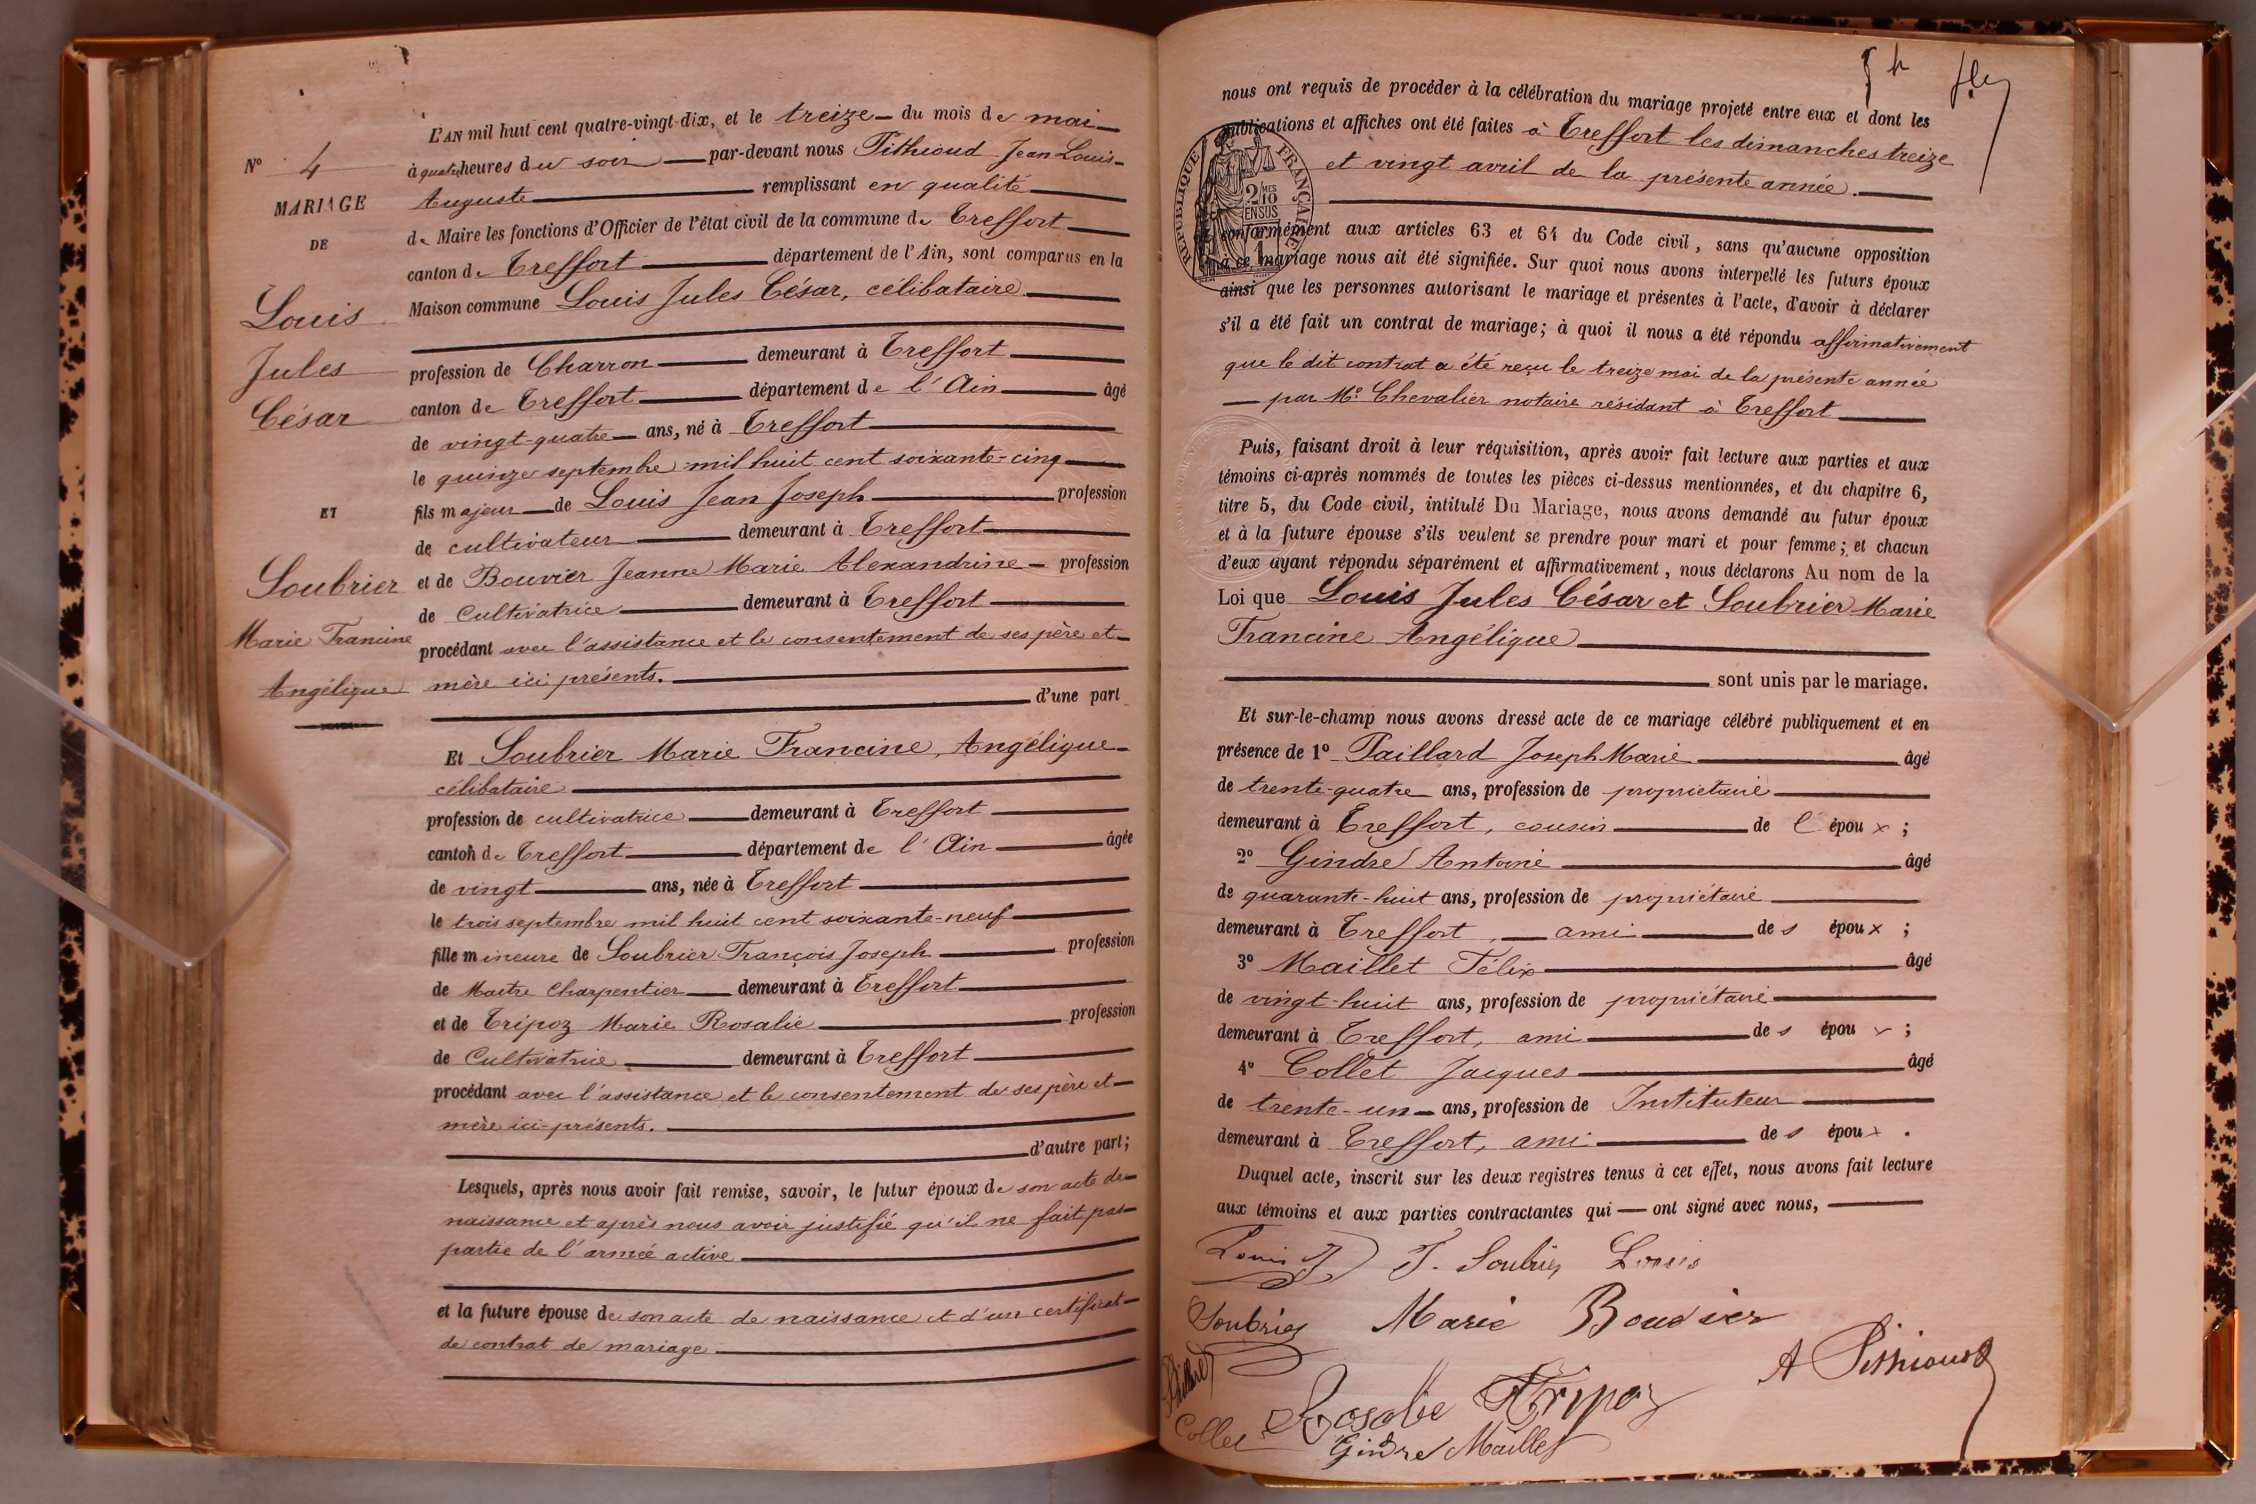 L'AN mil huit cent quatre-vingt-dix, et le treize du mois de mai
N° 4
à quatre heures du soir par-devant nous Pithioud Jean Louis
MARIAGE
Auguste remplissant en qualité
DE
de Maire les fonctions d'Officier de l'état civil de la commune de Treffort
canton de Treffort département de l'Ain, sont comparus en la
Louis
Maison commune Louis Jules César, célibataire
Jules
profession de Charron demeurant à Treffort
César
canton de Treffort département de l'Ain âgé
de vingt-quatre ans, né à Treffort
le quinze septembre mil huit cent soixante-cinq
ET
fils majeur de Louis Jean Joseph profession
de cultivateur demeurant à Treffort
Soubrier
et de Bouvier Jeanne Marie Alexandrine profession
de Cultivatrice demeurant à Treffort
Marie Francine
procédant avec l'assistance et le consentement de ses père et
Angélique
mère ici présents.
d'une part
Et Soubrier Marie Francine, Angélique
célibataire
profession de cultivatrice demeurant à Treffort
canton de Treffort département de l'Ain âgée
de vingt ans, née à Treffort
le trois septembre mil huit cent soixante-neuf
fille mineure de Soubrier François Joseph profession
de Maître Charpentier demeurant à Treffort
et de Tripoz Marie Rosalie profession
de Cultivatrice demeurant à Treffort
procédant avec l'assistance et le consentement de ses père et
mère ici-présents.
d'autre part;
Lesquels, après nous avoir fait remise, savoir, le futur époux de son acte de
naissance et après nous avoir justifié qu'il ne fait pas
partie de l'armée active
et la future épouse de son acte de naissance et d'un certificat
de contrat de mariage
nous ont requis de procéder à la célébration du mariage projeté entre eux et dont les
publications et affiches ont été faites à Treffort les dimanches treize
et vingt avril de la présente année.
RÉPUBLIQUE FRANÇAISE
2/10 MES
EN SUS
conformément aux articles 63 et 64 du Code civil, sans qu'aucune opposition
à ce mariage nous ait été signifiée. Sur quoi nous avons interpellé les futurs époux
ainsi que les personnes autorisant le mariage et présentes à l'acte, d'avoir à déclarer
s'il a été fait un contrat de mariage; à quoi il nous a été répondu affirmativement
que le dit contrat a été reçu le treize mai de la présente année
par Me Chevalier notaire résidant à Treffort
Puis, faisant droit à leur réquisition, après avoir fait lecture aux parties et aux
témoins ci-après nommés de toutes les pièces ci-dessus mentionnées, et du chapitre 6,
titre 5, du Code civil, intitulé Du Mariage, nous avons demandé au futur époux
et à la future épouse s'ils veulent se prendre pour mari et pour femme; et chacun
d'eux ayant répondu séparément et affirmativement, nous déclarons Au nom de la
Loi que Louis Jules César et Soubrier Marie
Francine Angélique
sont unis par le mariage.
Et sur-le-champ nous avons dressé acte de ce mariage célébré publiquement et en
présence de 1° Paillard Joseph Marie âgé
de trente-quatre ans, profession de propriétaire
demeurant à Treffort, cousin de l'époux;
2° Gindre Antoine âgé
de quarante-huit ans, profession de propriétaire
demeurant à Treffort, ami des époux;
3° Maillet Félix âgé
de vingt-huit ans, profession de propriétaire
demeurant à Treffort, ami des époux;
4° Collet Jacques âgé
de trente-un ans, profession de Instituteur
demeurant à Treffort, ami des époux.
Duquel acte, inscrit sur les deux registres tenus à cet effet, nous avons fait lecture
aux témoins et aux parties contractantes qui ont signé avec nous,
Louis J F. Soubrier Louis
Soubrier Marie Bouvier
A Pithioud
Paillard
Rosalie Tripoz
Collet
Gindre Maillet